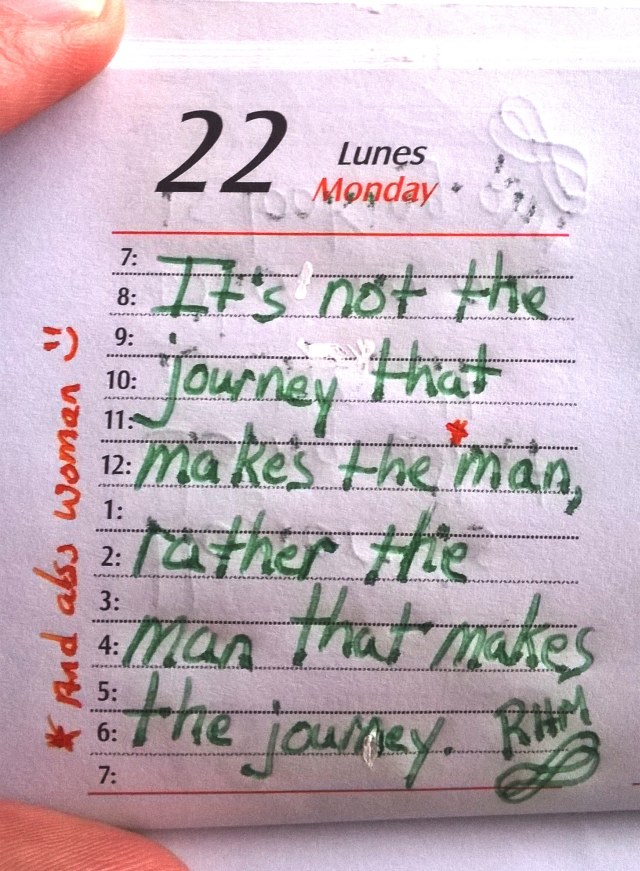 22
Lunes
Monday
7:
8: It's not the
9:
10: journey that
11:
12: makes the *man,
1:
2: rather the
3:
4: man that makes
5:
6: the journey. RHM
7:
* And also women :)